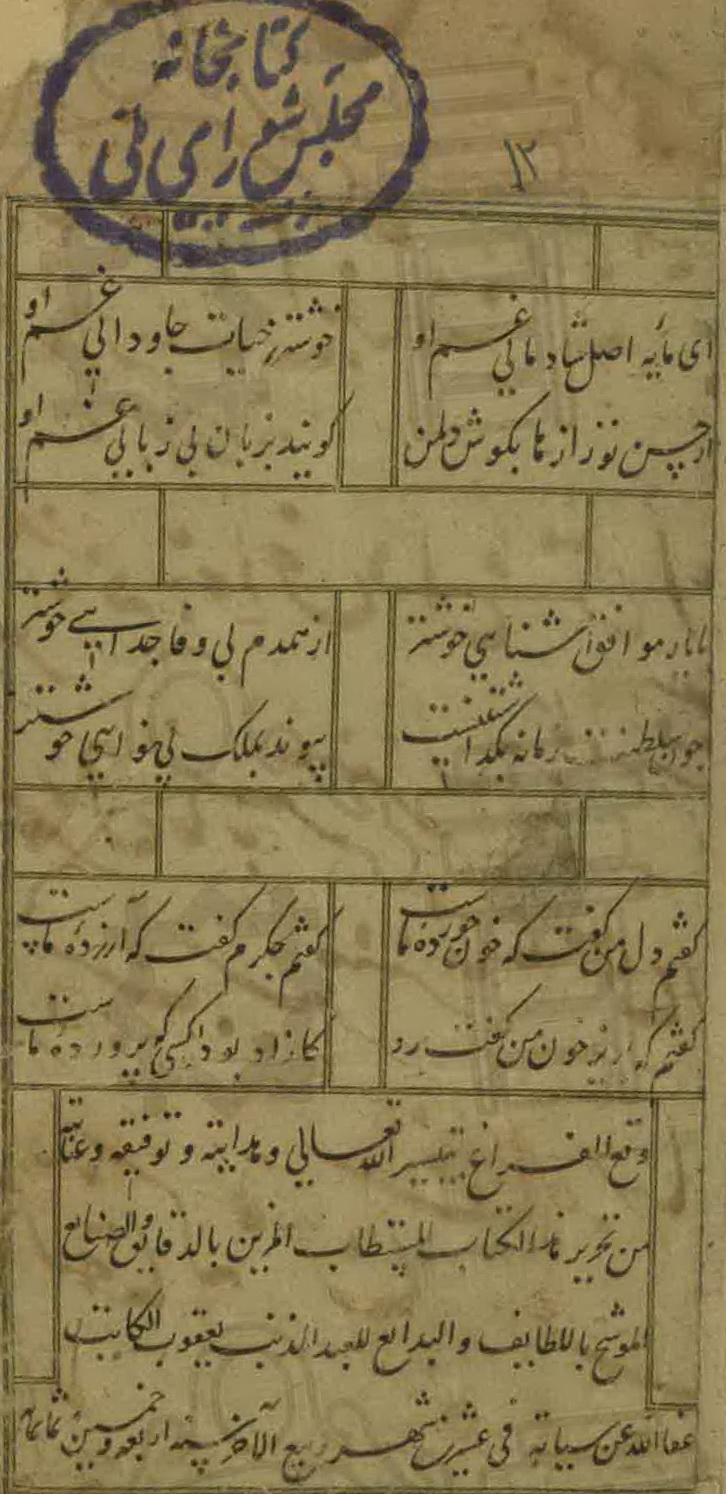 کتابخانه
مجلس شورای ملی
۱۲
ای مایه اصل شادمانی غم او
خوشتر ز حیات جاودانی غم او
از حسن تو رازها بگوش دل من
کویند بزبان بی زبانی غم او
با یار موافق آشنایی خوشتر
از همدم بی وفا جدایی خوشتر
چون سلطنت زمانه بگذاشتنیست
پیوند بملک بی نوایی خوشتر
کفتم دل من کفت که خون خورده ماست
کفتم جگرم کفت که آزرده ماست
کفتم که بریز خون من کفت برو
کازاد بود کسی که پرورده ماست
وقع الفراغ بتیسیر الله تعالی وهدایته و توفیقه وعنایته
من تحریر هذا الکتاب المستطاب المزین بالدقایق والصنایع
الموشح باللطایف والبدایع للعبد المذنب یعقوب الکاتب
عفا الله عن سیاته فی عشرین شهر ربیع الآخر سنه اربعه وخمسین ثمانمائه